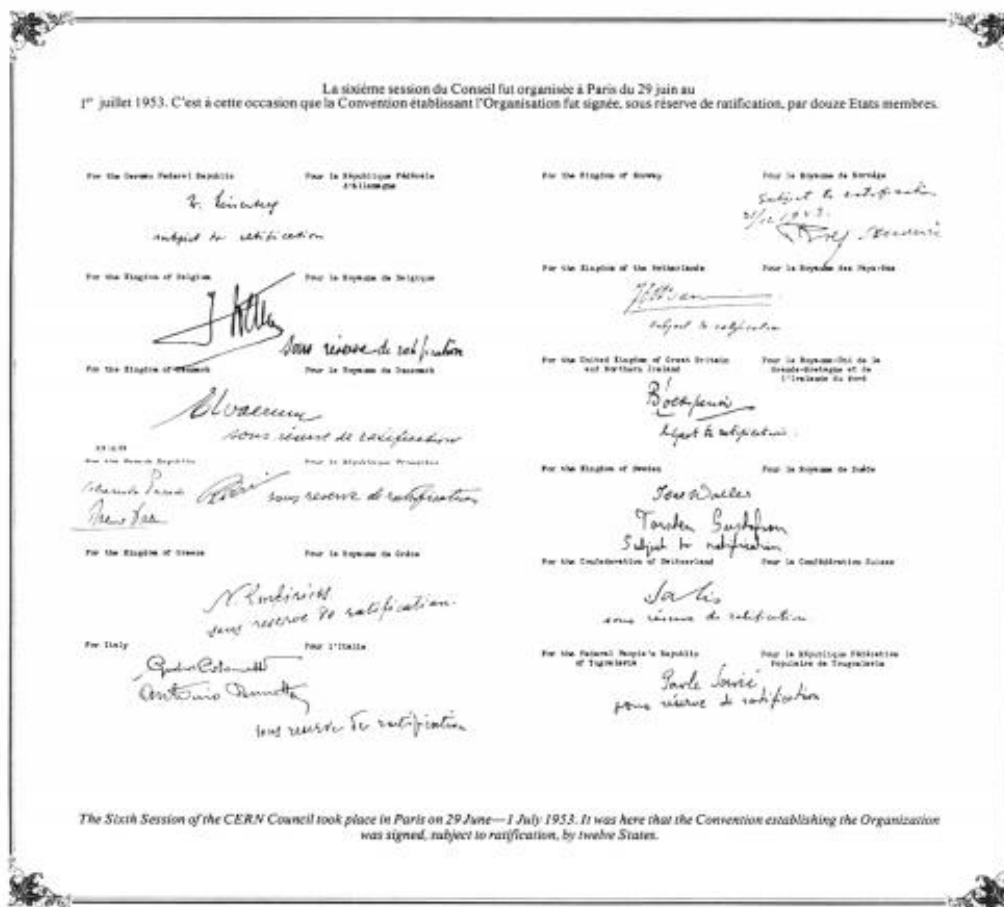 La sixième session du Conseil fut organisée à Paris du 29 juin au
1er juillet 1953. C'est à cette occasion que la Convention établissant l'Organisation fut signée, sous réserve de ratification, par douze Etats membres.
For the German Federal Republic
Pour la République Fédérale
d'Allemagne
subject to ratification
For the Kingdom of Belgium
Pour le Royaume de Belgique
sous réserve de ratification
For the Kingdom of Denmark
Pour le Royaume de Danemark
sous réserve de ratification
For the French Republic
Pour la République Française
sous reserve de ratification
For the Kingdom of Greece
Pour le Royaume de Grèce
sous reserve de ratification.
For Italy
Pour l'Italie
sous reserve de ratification
For the Kingdom of Norway
Pour le Royaume de Norvège
Subject to ratification
For the Kingdom of the Netherlands
Pour le Royaume des Pays-Bas
subject to ratification
For the United Kingdom of Great Britain
and Northern Ireland
Pour le Royaume-Uni de la
Grande-Bretagne et de
l'Irlande du Nord
subject to ratification.
For the Kingdom of Sweden
Pour le Royaume de Suède
Torsten Gustafson
Subject to ratification
For the Confederation of Switzerland
Pour la Confédération Suisse
sous réserve de ratification
For the Federal People's Republic
of Yugoslavia
Pour la République Fédérative
Populaire de Yougoslavie
Pavle Savić
sous réserve de ratification
The Sixth Session of the CERN Council took place in Paris on 29 June—1 July 1953. It was here that the Convention establishing the Organization
was signed, subject to ratification, by twelve States.